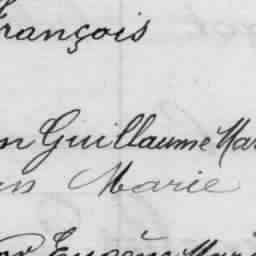 François
n Guillaume Mar
Marie
Eugène Mari